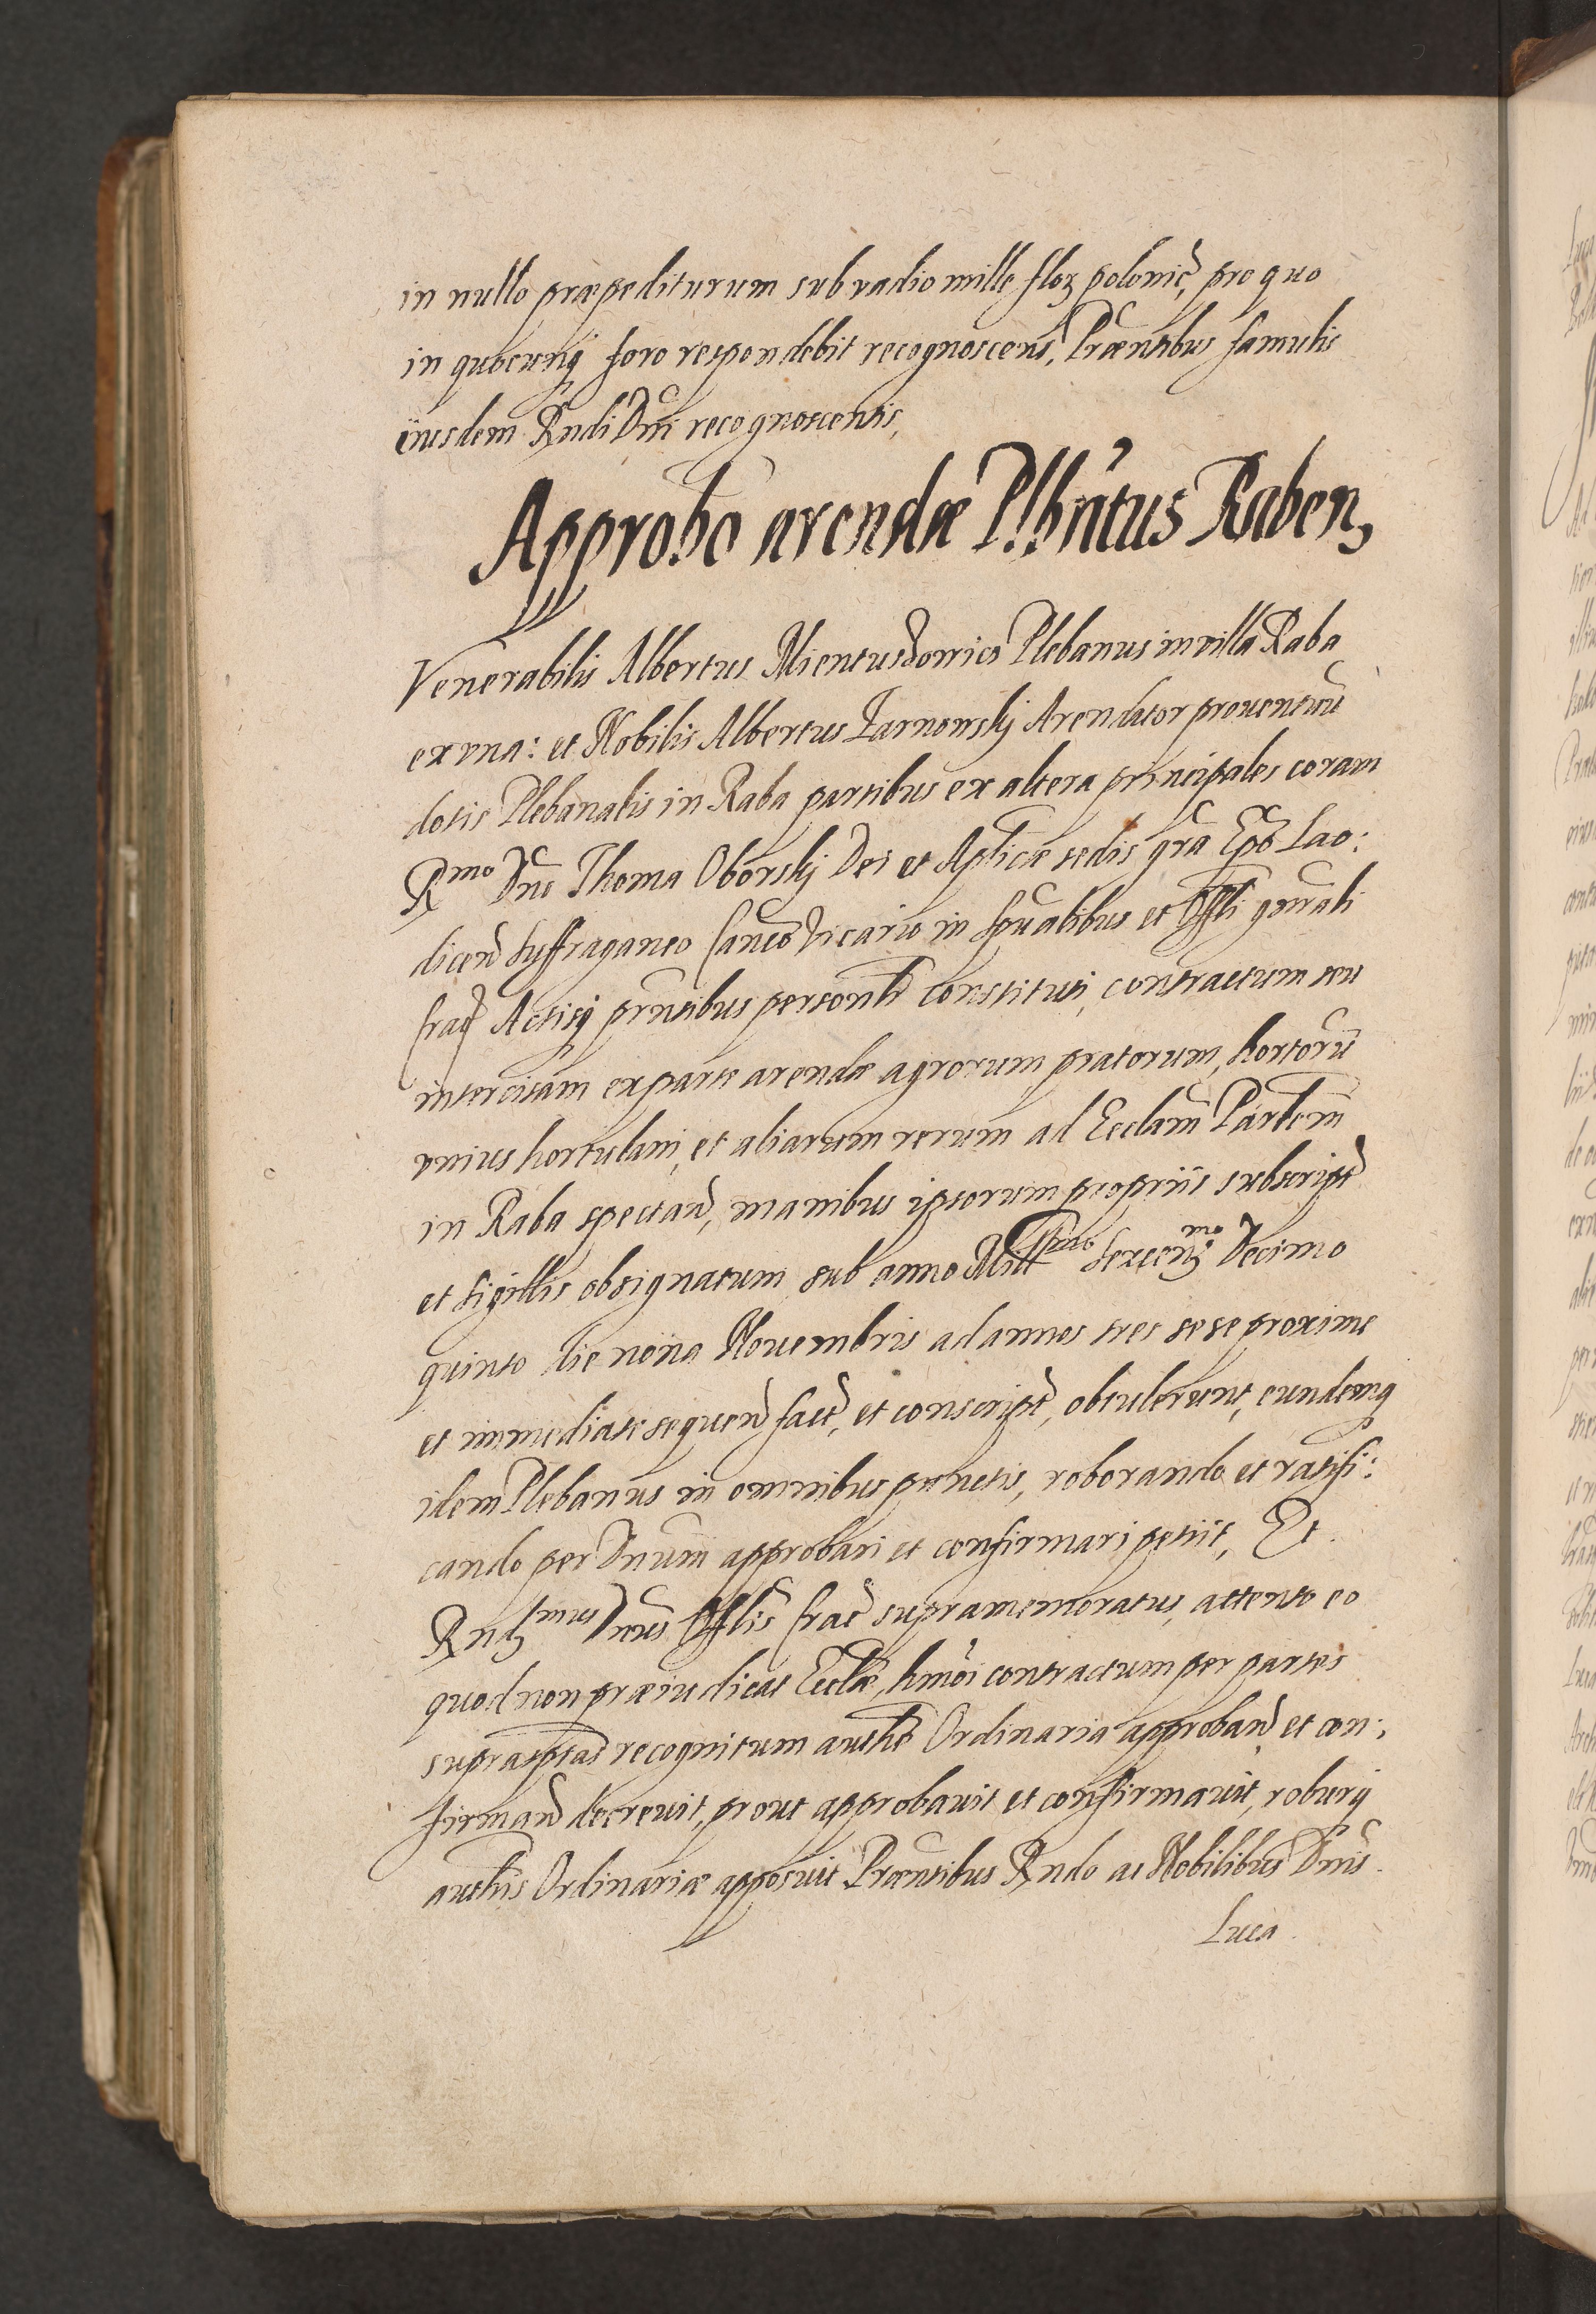 in nullo præpediturum sub vadio mille floȝ polonic̃, pro quo
in quocunq̃ foro respondebit recognoscens, Præntibus famulis
eiusdem Rndi Dni recognoscentis,
Approbõ arendæ Plbñatus Raben,
Venerabilis Albertus Plebanus in villa Raba
ex vna: et Nobilis Albertus Tarnowskj Arendator prouentuũ
dotis Plebanalis in Raba partibus ex altera principales coram
Rmo Dno Thoma Oborskj Dei et Aplicæ sedis grã Epõ Lao:
dicen̄ Suffraganeo Vicario in Spũalibus et Offli gnrali
Crac̃ Actisq̃ pñtibus personlr̃ constituti, contractum seu
intercisam ex parte arendæ agrorum, pratorum, hortorũ
vnius hortulani, et aliarum rerum ad Ecclam̃
in Raba spectan̄, manibus ipsorum propriis subscript̃
et sigillis obsignatum sub anno Mill̃simo Sexcenȝmo Decimo
quinto die nona Nouembris ad annos tres sese proxime
et immediate sequen̄ fact̃, et conscript̃, obtulerunt, eundemq̃
idem Plebanus in omnibus punctis, roborando et ratifi:
cando per Dnum approbari et confirmari petiit, Et
Rndȝsmus Dnus Offlis Crac̃ supramemoratus, attento eo
quod non præiudicat Ecclæ, hmõi contractum per partes
suprasptas recognitum authẽ Ordinaria approban̄ et con:
firman̄ decreuit, prout approbauit et confirmauit, roburq̃
authis Ordinariæ apposuit Præntibus Rndo ac Nobilibus Dnis.
Luca